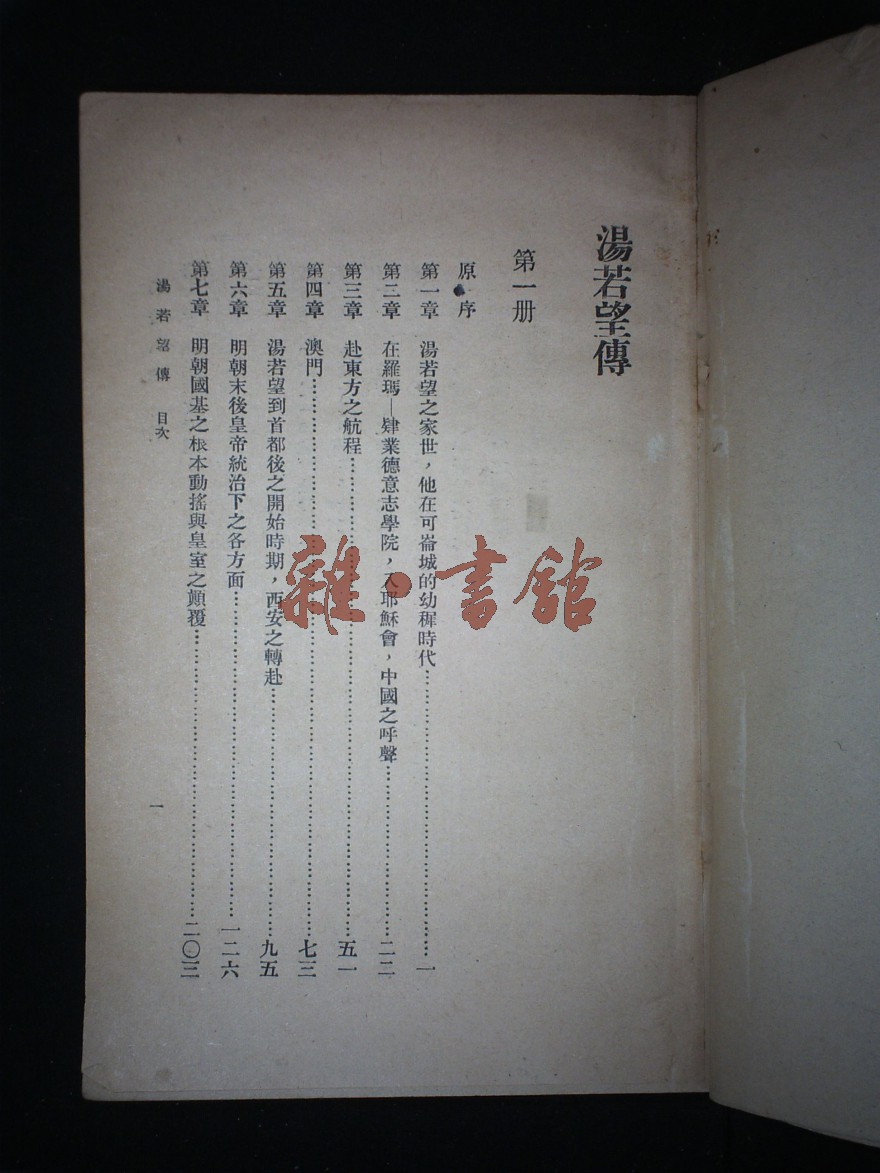 湯若望傳
第一册
原序
第一章　湯若望之家世，他在可崙城的幼穉時代……一
第二章　在羅瑪—肄業德意志學院，入耶穌會，中國之呼聲……二二
第三章　赴東方之航程……五一
第四章　澳門……七三
第五章　湯若望到首都後之開始時期，西安之轉赴……九五
第六章　明朝末後皇帝統治下之各方面……一二六
第七章　明朝國基之根本動搖與皇室之顛覆……二〇三
湯若望傳　目次　一
雜·書館